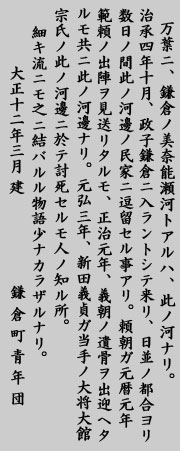 万葉ニ、鎌倉ノ美奈能瀬河トアルハ、此ノ河ナリ。
治承四年十月、政子鎌倉ニ入ラントシテ来リ、日並ノ都合ヨリ
数日ノ間此ノ河邊ノ民家ニ逗留セル事アリ。頼朝ガ元暦元年
範頼ノ出陣ヲ見送リタルモ、正治元年、義朝ノ遺骨ヲ出迎ヘタ
ルモ共ニ此ノ河邊ナリ。元弘三年、新田義貞ガ当手ノ大将大館
宗氏ノ此ノ河邊ニ於テ討死セルモ人ノ知ル所。
細キ流ニモ之ニ結バルル物語少ナカラザルナリ。
大正十二年三月建 鎌倉町青年団